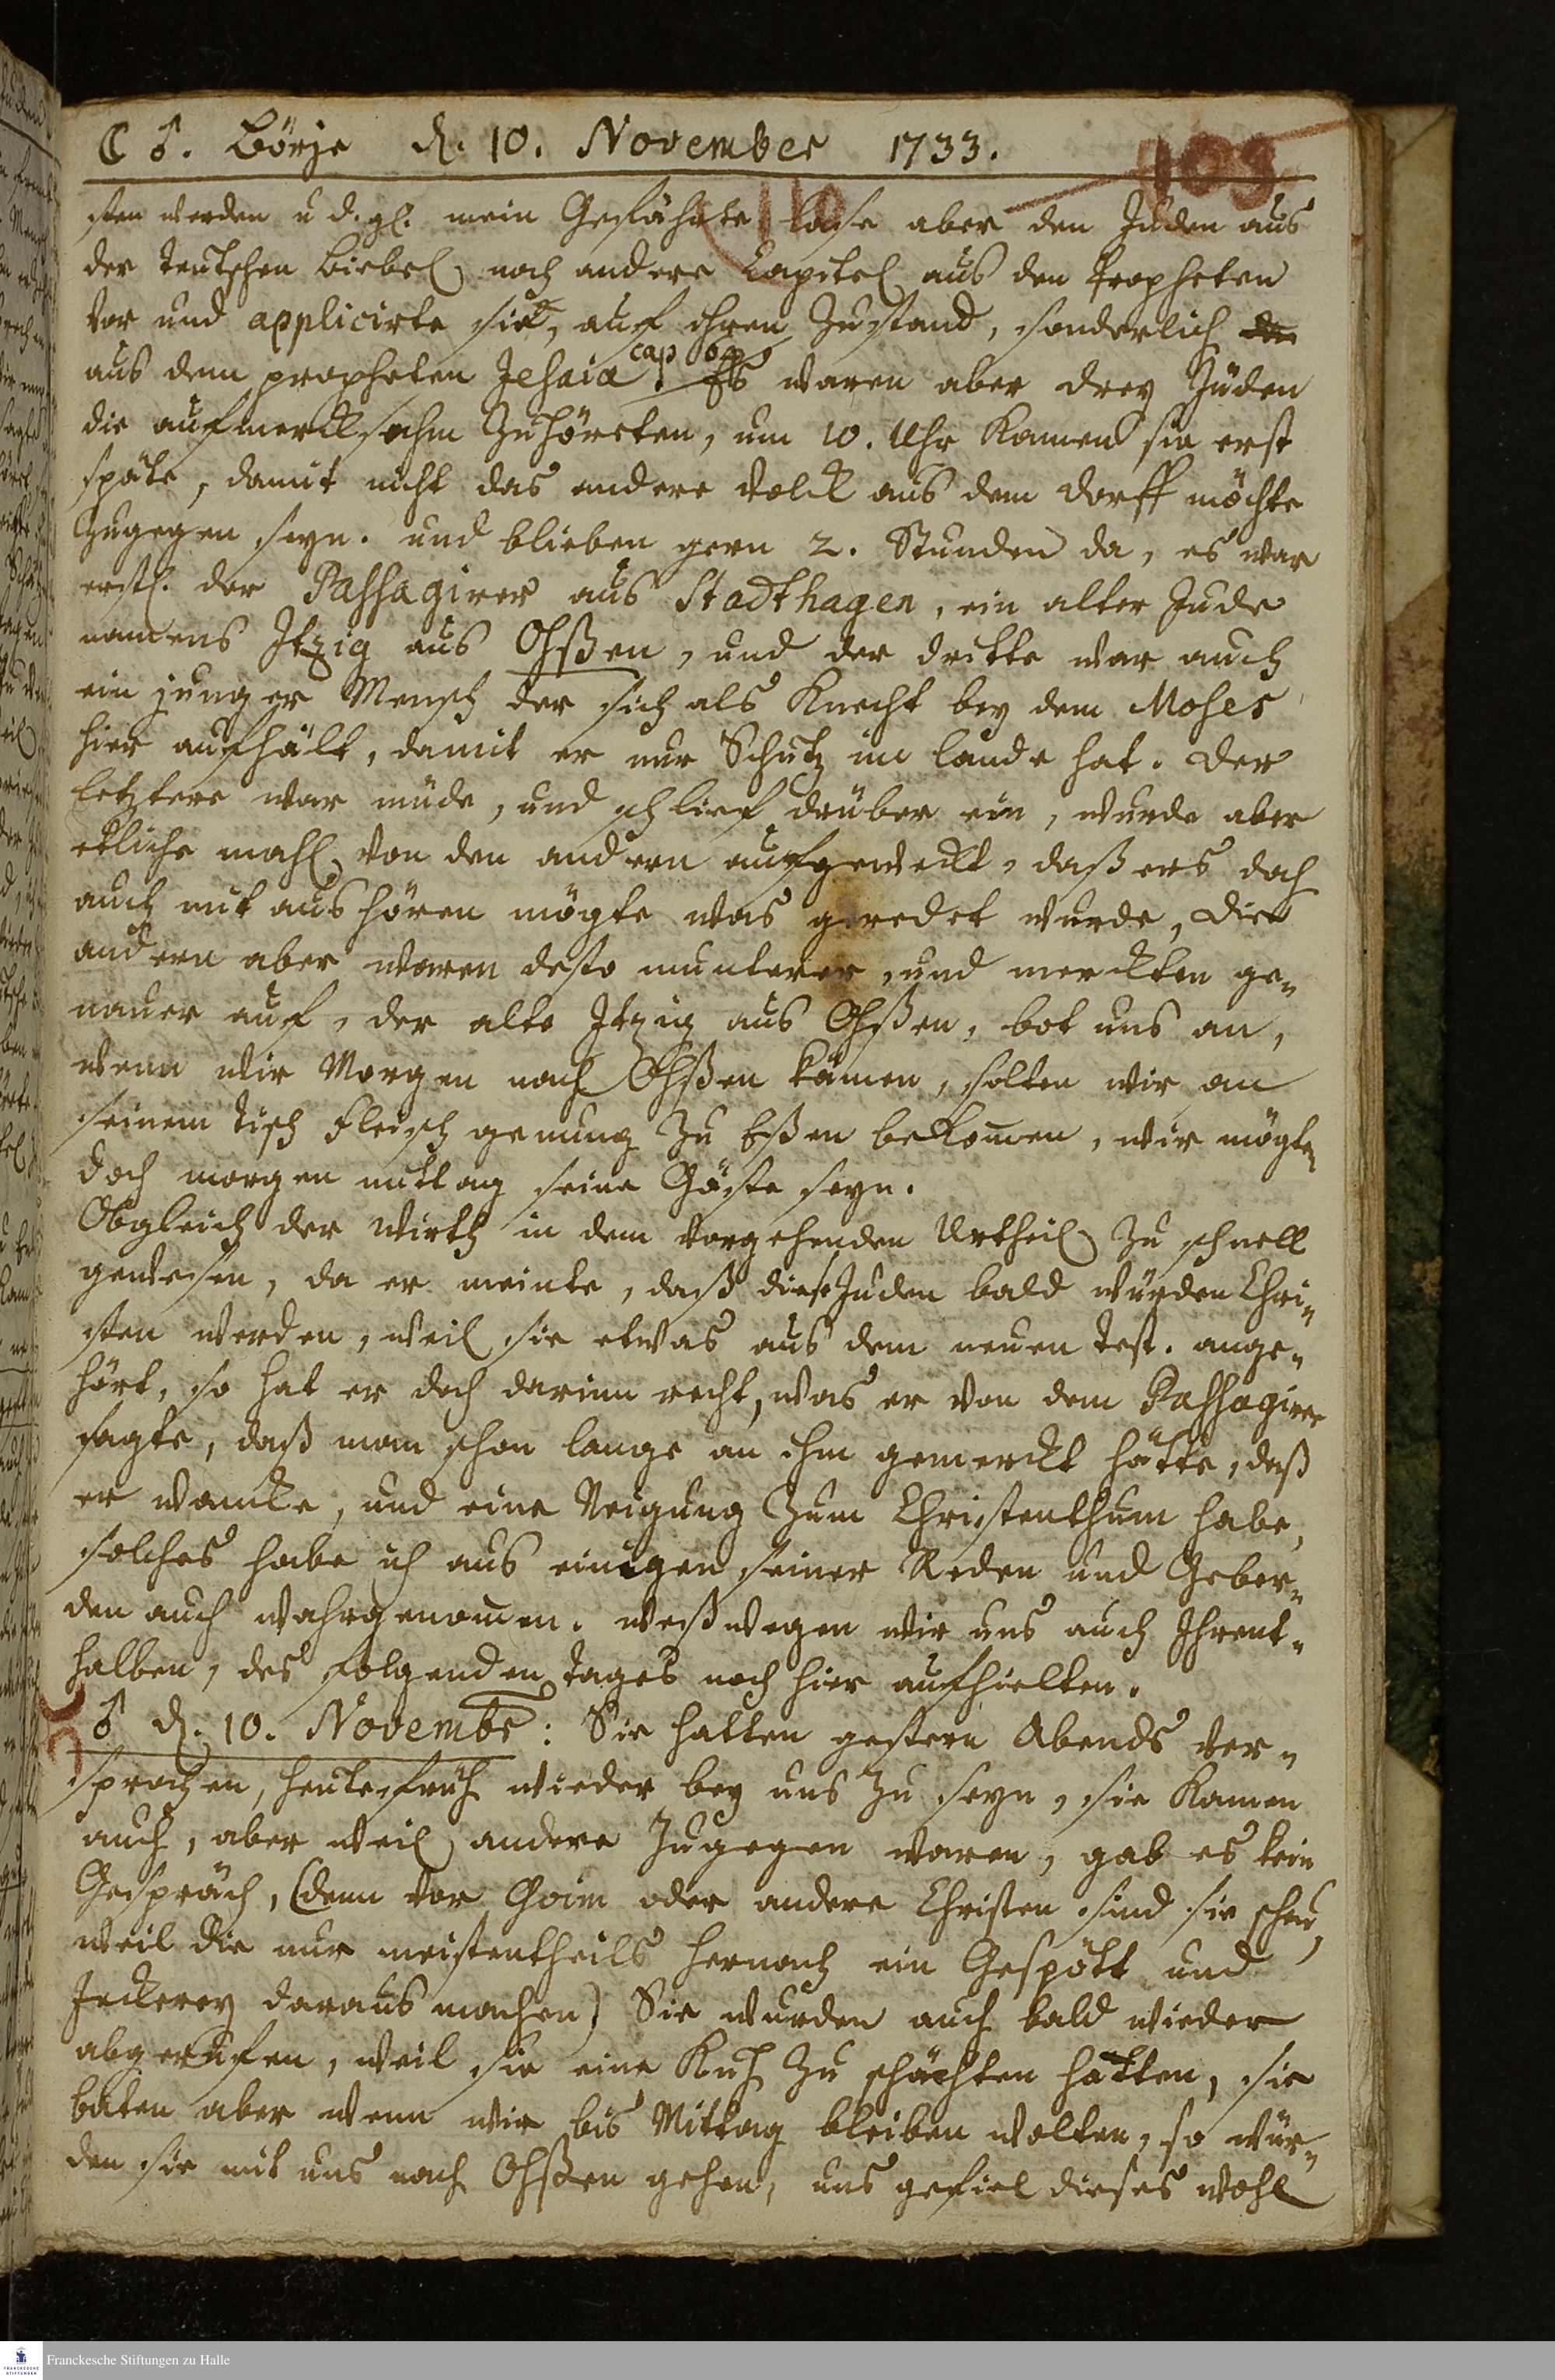 ☾ ♂. Börje d. 10. November 1733.
103
110
sten werden u d. gl. mein Gefährte lase aber den Juden aus
der teutschen Biebel noch andere Capitel aus den Propheten
vor und applicirte sie, auf ihren Zustand, sonderlich
aus dem propheten Jesaia cap. Es waren aber drey Jüden
die aufmercksahm Zuhöreten, um 10. Uhr kamen sie erst
späte, damit nicht das andere Volck aus dem dorff möchte
Zugegen seyn. und blieben gern 2. Stunden da, es war
erstl. der Passagirer aus Stadthagen, ein alter Jude
namens Itzig aus Ohßen, und der dritte war auch
ein junger Mensch der sich als Knecht bey dem Moses
hier aufhält, damit er nur Schutz im lande hat. Der
letztere war müde, und schlief drüber ein, wurde aber
etliche mahl von den andern aufgeweckt, daß ers doch
auch mit aus hören mögte was geredet wurde, die
andern aber waren desto munterer, und merckten ge-
nauer auf, der alte Itzig aus Ohßen, bot uns an,
wenn wir Morgen nach Ohßen kämen, solten wir an
seinem tisch Fleisch genung zu Eßen bekommen, wir mögten
doch morgen mittag seine Gäste seyn.
Obgleich der Wirth in dem vorgehenden Urtheil zu schnell
gewesen, da er meinte, daß diese Juden bald würden Chri-
sten werden, weil sie etwas aus dem neuen Test. ange-
hört, so hat er doch darinn recht, was er von dem Passagirer
sagte, daß man schon lange an ihm gemerckt hätte, daß
er wancke, und eine Neigung zum Christenthum habe,
solches habe ich aus einigen seiner Reden und Geber-
den auch wahrgenommen. weßwegen wir uns auch Ihrent-
halben, des folgenden tages noch hier aufhielten.
♂ d. 10. Novembr: Sie hatten gestern Abends ver-
sprochen, heute früh wieder bey uns zu seyn, sie kamen
auch, aber weil andere zugegen waren, gab es kein
Gespräch, (denn vor Goim oder andere Christen sind sie scheu,
weil die nur meistentheils hernach ein Gespött und
Jeckerey daraus machen) Sie wurden auch bald wieder
abgerufen, weil sie eine Kuh zu schächten hatten, sie
baten aber wenn wir bis Mittag bleiben wolten, so wür-
den sie mit uns nach Ohßen gehen, uns gefiel dieses wohl
Franckesche Stiftungen zu Halle